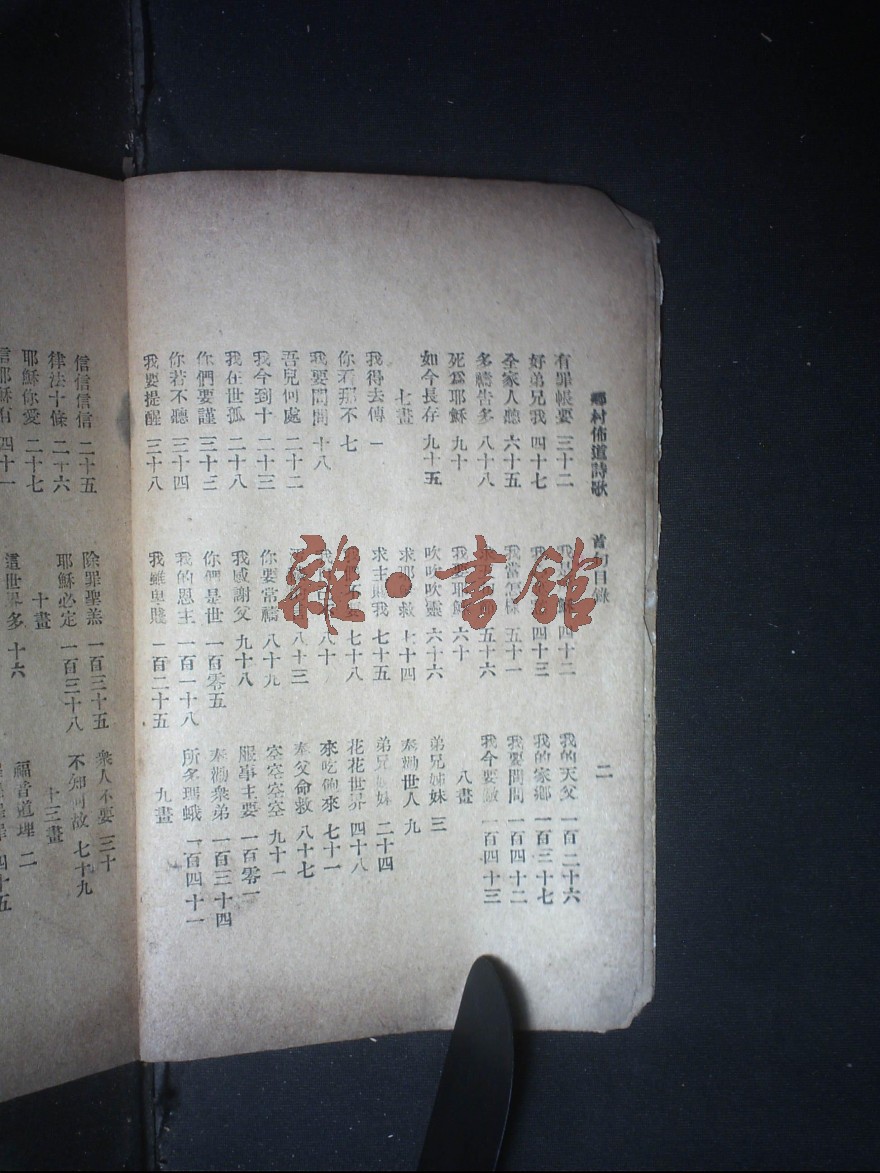 鄉村佈道詩歌 首句目錄 二
有罪帳要 三十二
好弟兄我 四十七
全家人聽 六十五
多禱告多 八十八
死爲耶穌 九十
如今長存 九十五
七畫
我得去傳 一
你看那不 七
我要問問 十八
吾兒何處 二十二
我今到十 二十三
我在世孤 二十八
你們要謹 三十三
你若不聽 三十四
我要提醒 三十八
四十二
四十三
我當怎樣 五十一
五十六
我要耶穌 六十
吹吹吹靈 六十六
求耶穌救 七十四
求主賜我 七十五
七十八
八十
八十三
你要常禱 八十九
我感謝父 九十八
你們是世 一百零五
我的恩主 一百一十八
我雖卑賤 一百二十五
我的天父 一百二十六
我的家鄉 一百三十七
我要問問 一百四十二
我今要 一百四十三
八畫
弟兄姊妹 三
奉勸世人 九
弟兄姊妹 二十四
花花世界 四十八
來吃飽來 七十一
奉父命救 八十七
空空空空 九十一
服事主要 一百零一
奉勸衆弟 一百三十四
所多瑪蛾 一百四十一
九畫
信信信信 二十五
律法十條 二十六
耶穌你愛 二十七
信耶穌有 四十一
除罪聖羔 一百三十五
耶穌必定 一百三十八
十畫
這世界多 十六
衆人不要 三十
不知何故 七十九
十三畫
福音道理 二
四十五
雜·書館